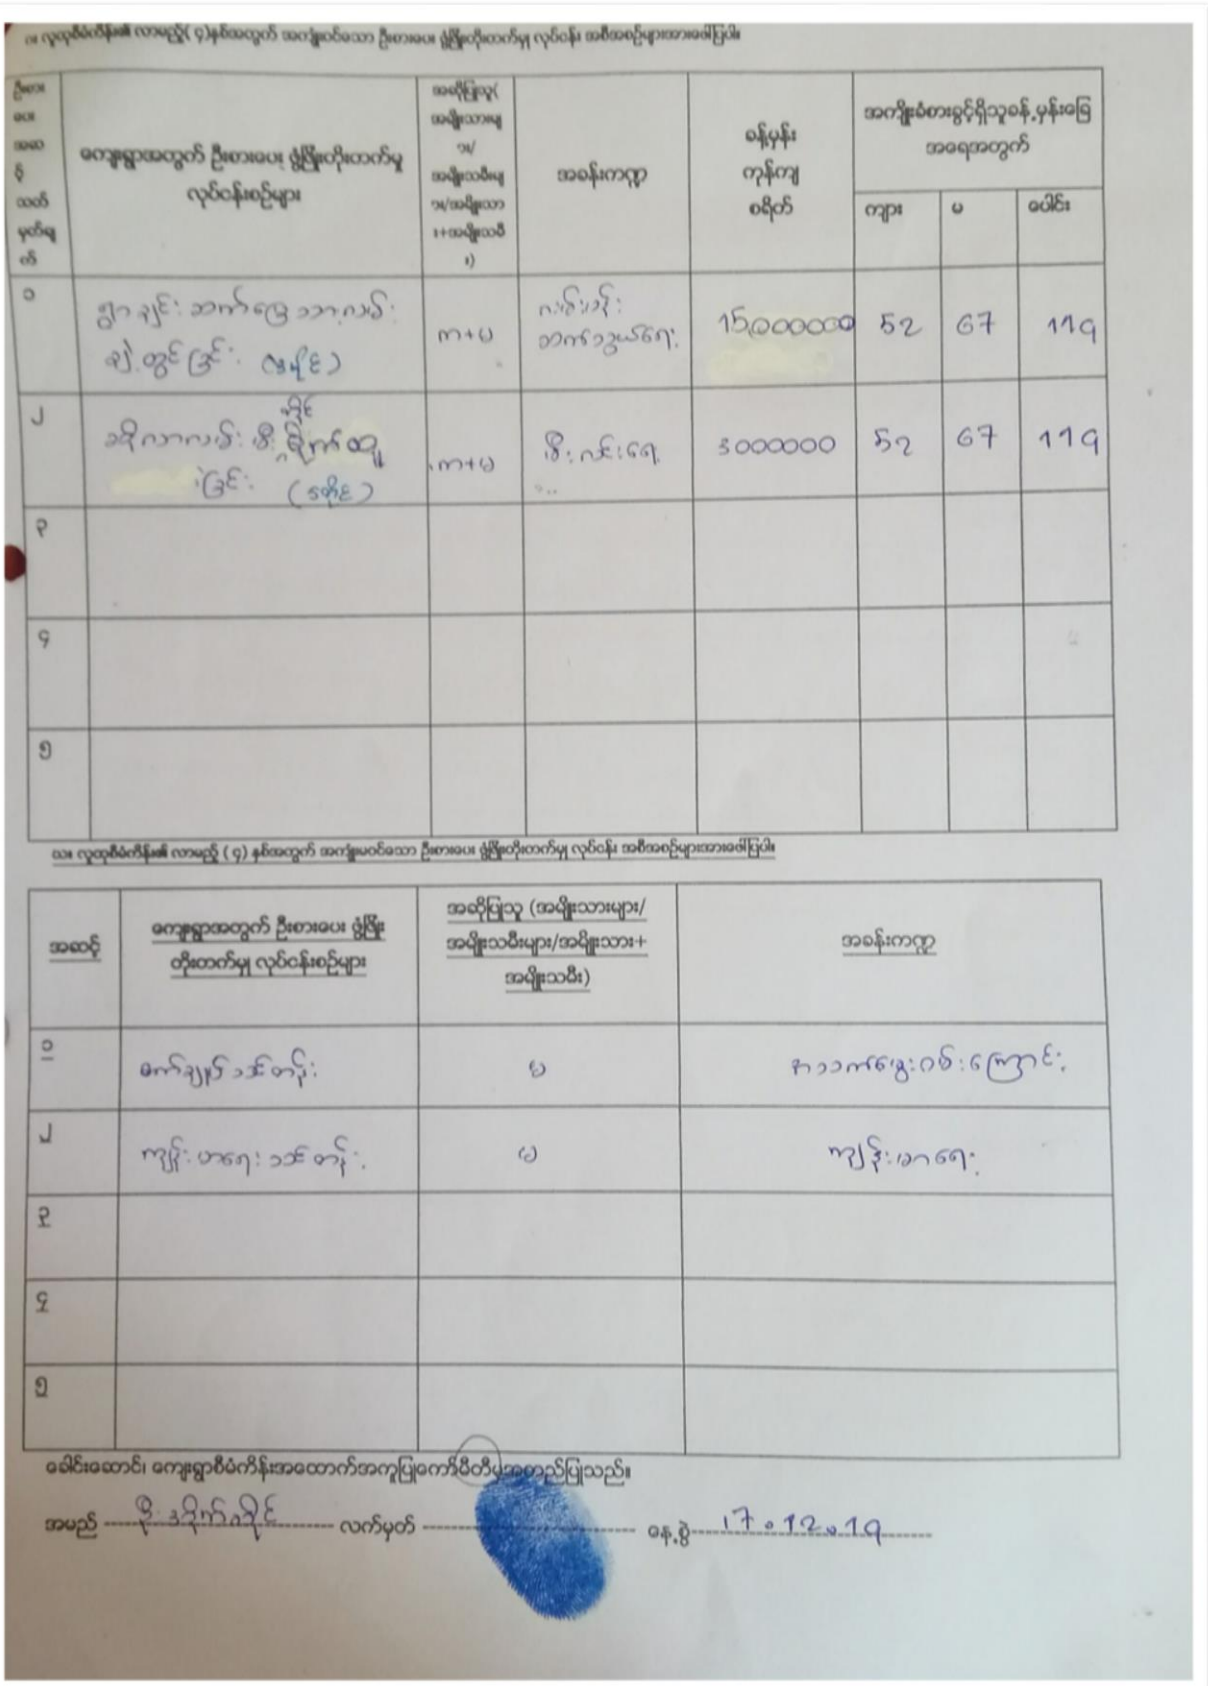 ဂ။ လူထုစီမံကိန်း၏ လာမည့်( ၄)နှစ်အတွက် အကျုံးဝင်သော ဦးစားပေး ဖွံ့ဖြိုးတိုးတက်မှု လုပ်ငန်း အစီအစဉ်များအားဖေါ်ပြပါ။
ဦးစား
ပေး
အဆ
င့်
သတ်
မှတ်ချ
က်
ကျေးရွာအတွက် ဦးစားပေး ဖွံ့ဖြိုးတိုးတက်မှု
လုပ်ငန်းစဉ်များ
အဆိုပြုသူ(
အမျိုးသားမျ
ား/
အမျိုးသမီးမျ
ား/အမျိုးသာ
း+အမျိုးသမီ
း)
အခန်းကဏ္ဍ
ခန့်မှန်း
ကုန်ကျ
စရိတ်
အကျိုးခံစားခွင့်ရှိသူခန့်မှန်းခြေ
အရေအတွက်
ကျား
မ
ပေါင်း
၁
ရွာချင်းဆက်မြေသားလမ်း
ချဲ့ထွင်ခြင်း
က+မ
လမ်းပန်း
ဆက်သွယ်ရေး
15,000000 52 67 119
၂
မီး
က+မ
မီးလင်းရေး
3000000 52 67 119
ခြင်း
၃
၄
၅
ဃ။ လူထုစီမံကိန်း၏ လာမည့် ( ၄) နှစ်အတွက် အကျုံးမဝင်သော ဦးစားပေး ဖွံ့ဖြိုးတိုးတက်မှု လုပ်ငန်း အစီအစဉ်များအားဖေါ်ပြပါ။
အဆင့်
ကျေးရွာအတွက် ဦးစားပေး ဖွံ့ဖြိုး
တိုးတက်မှု လုပ်ငန်းစဉ်များ
အဆိုပြုသူ (အမျိုးသားများ/
အမျိုးသမီးများ/အမျိုးသား+
အမျိုးသမီး)
အခန်းကဏ္ဍ
၁ စက်ချုပ်သင်တန်း မ အသက်မွေးဝမ်းကြောင်း
၂ ကျန်းမာရေးသင်တန်း မ ကျန်းမာရေး
၃
၄
၅
ခေါင်းဆောင်၊ ကျေးရွာစီမံကိန်းအထောက်အကူပြုကော်မီတီမှအတည်ပြုသည်။
အမည် လက်မှတ် နေ့စွဲ 17.12.19